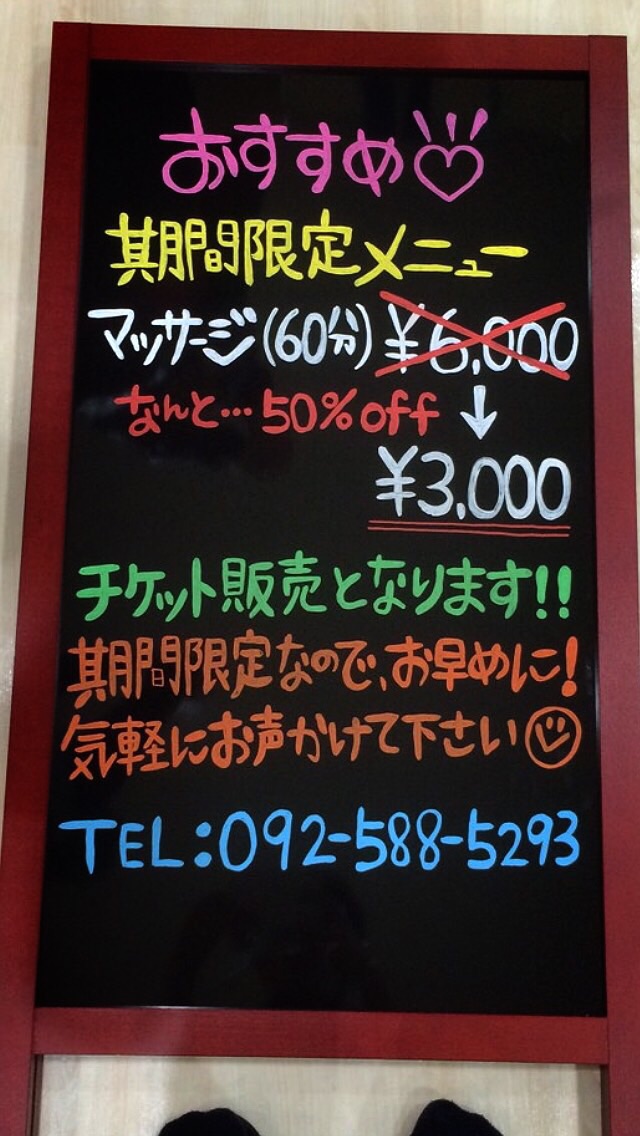 おすすめ♡
期間限定メニュー
マッサージ(60分) ¥6,000
なんと…50%off ↓
¥3,000
チケット販売となります!!
期間限定なので、お早めに!
気軽にお声かけて下さい☺
TEL:092-588-5293